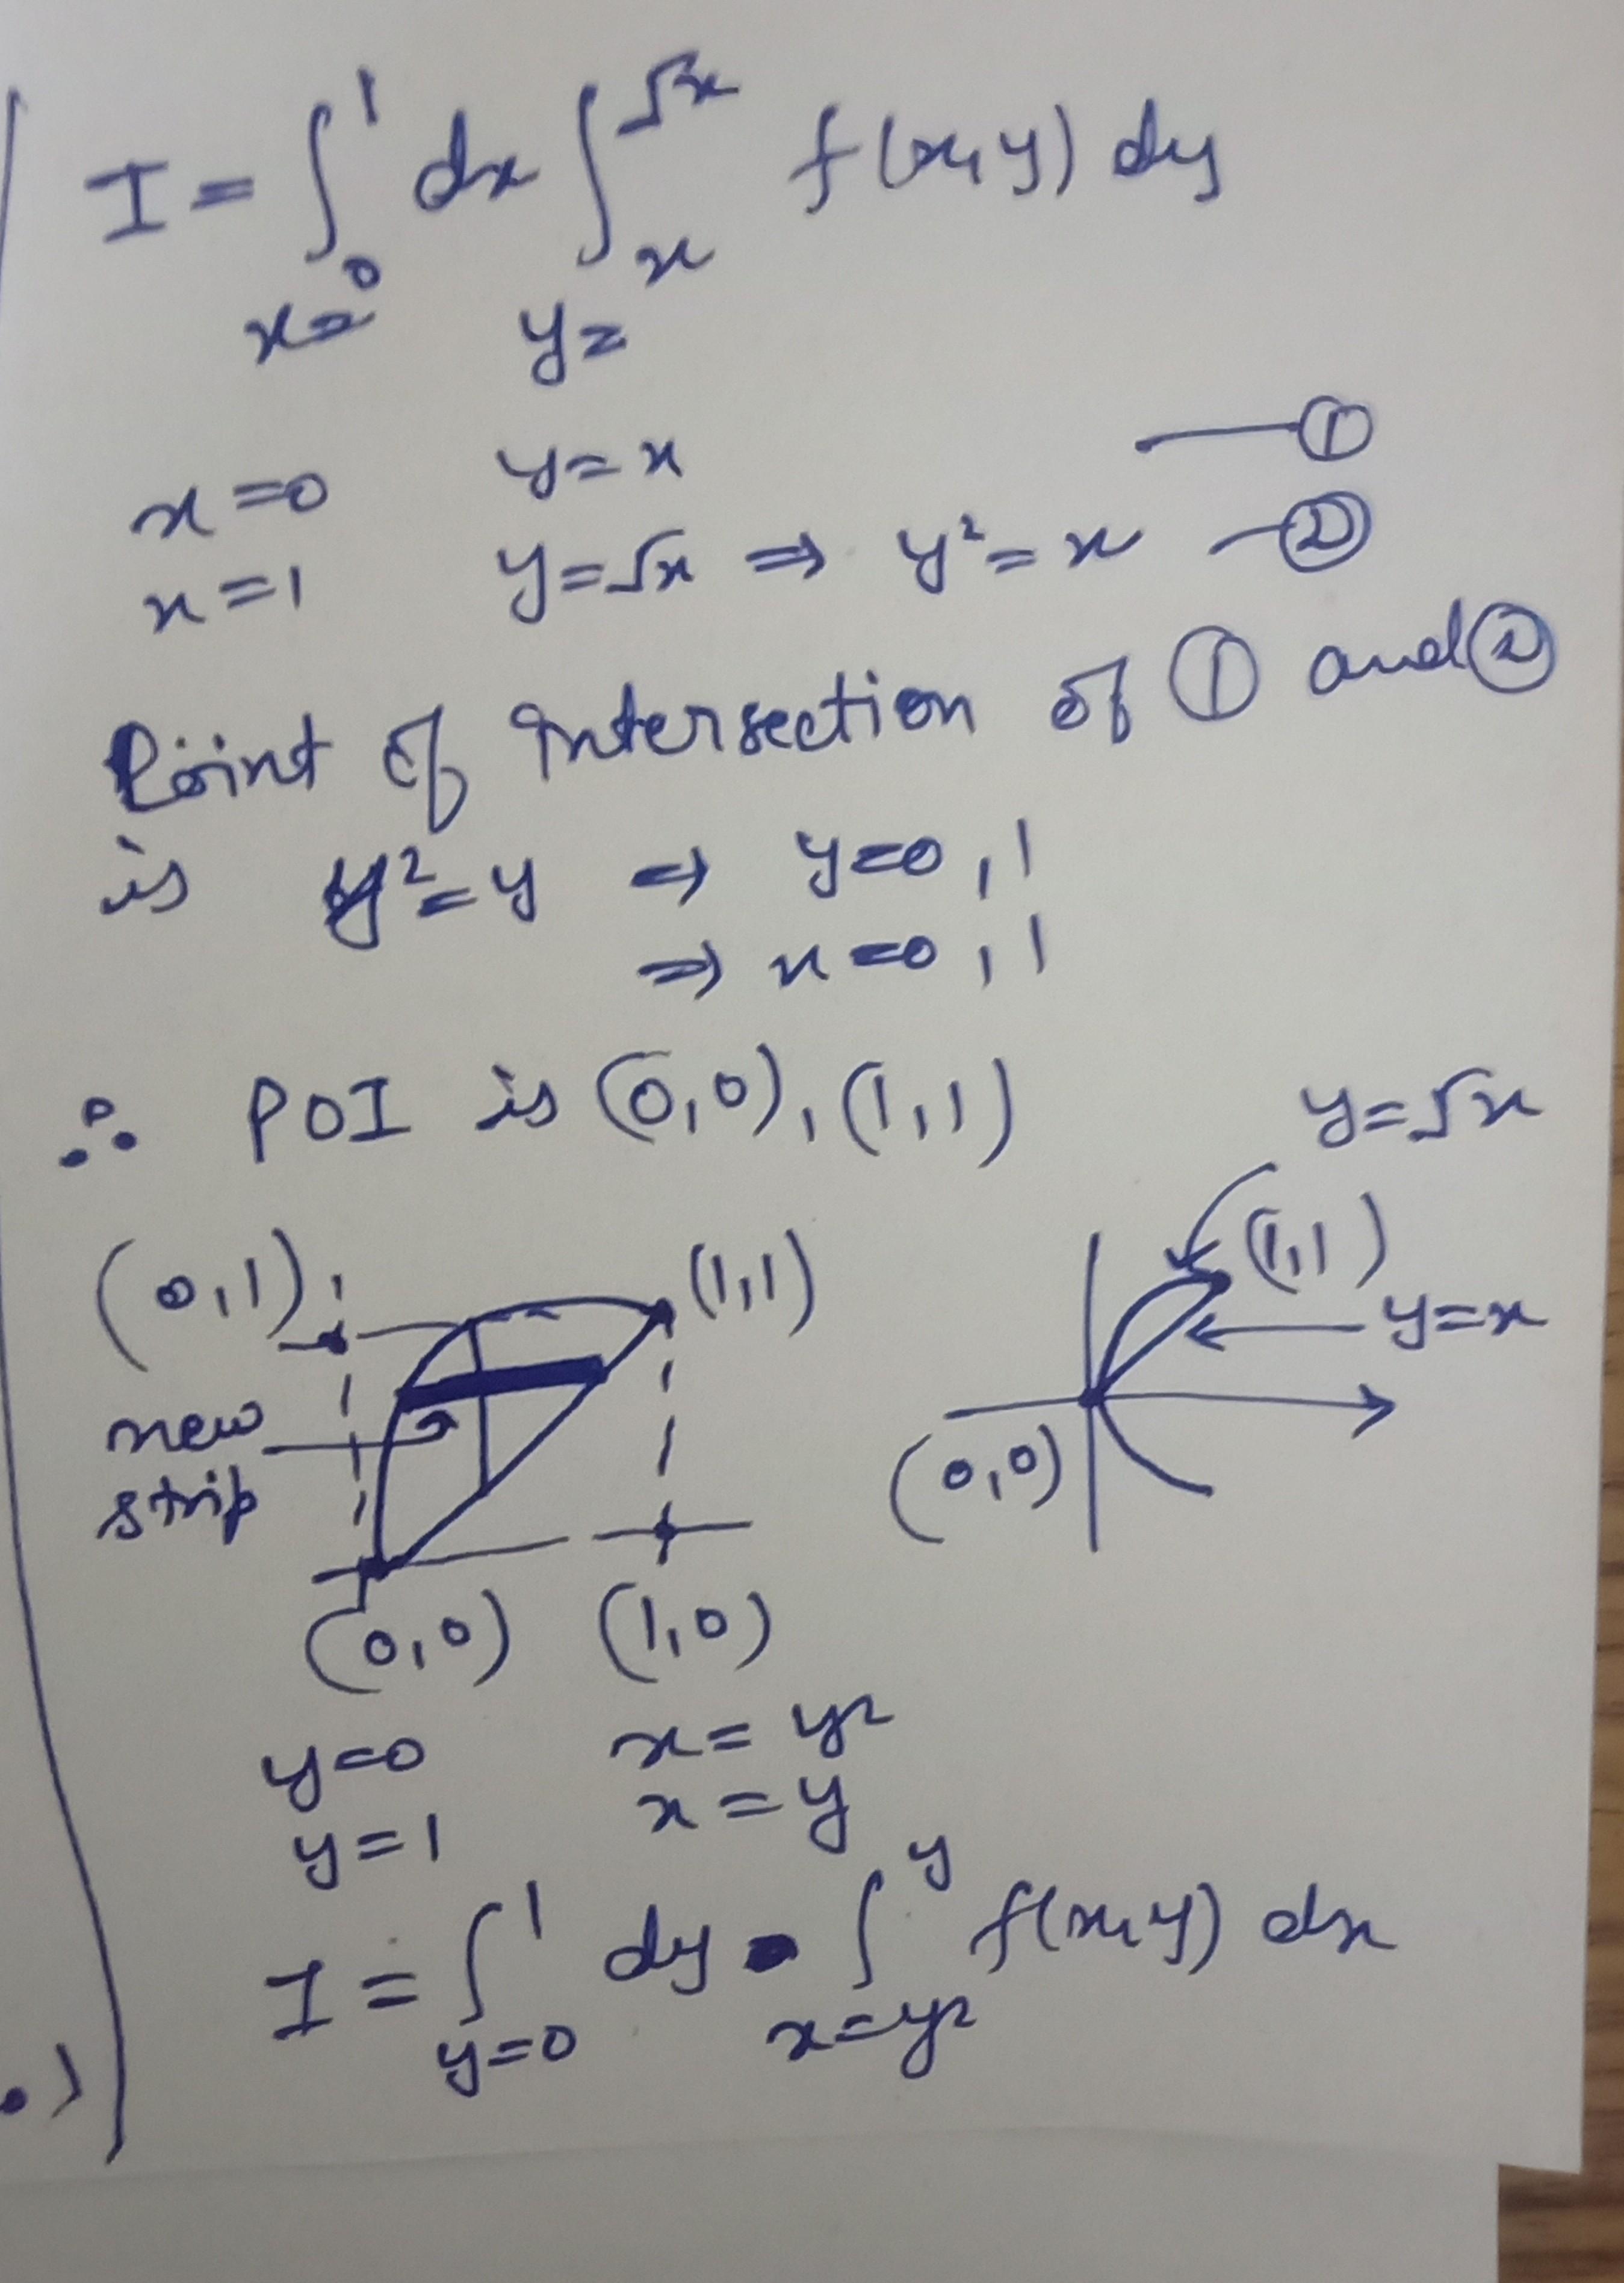 I = ∫₀¹ dx ∫ₓ^√x f(x,y) dy
x= y=
x=0 y=x —①
x=1 y=√x ⇒ y²=x —②
Point of Intersection of ① and ②
is y²=y ⇒ y=0,1
⇒ x=0,1
∴ POI is (0,0), (1,1)
y=√x
(0,1) (1,1) (1,1)
y=x
new
strip
(0,0)
(0,0) (1,0)
y=0 x=y²
y=1 x=y
I = ∫_{y=0}^1 dy ∫_{x=y²}^y f(x,y) dx